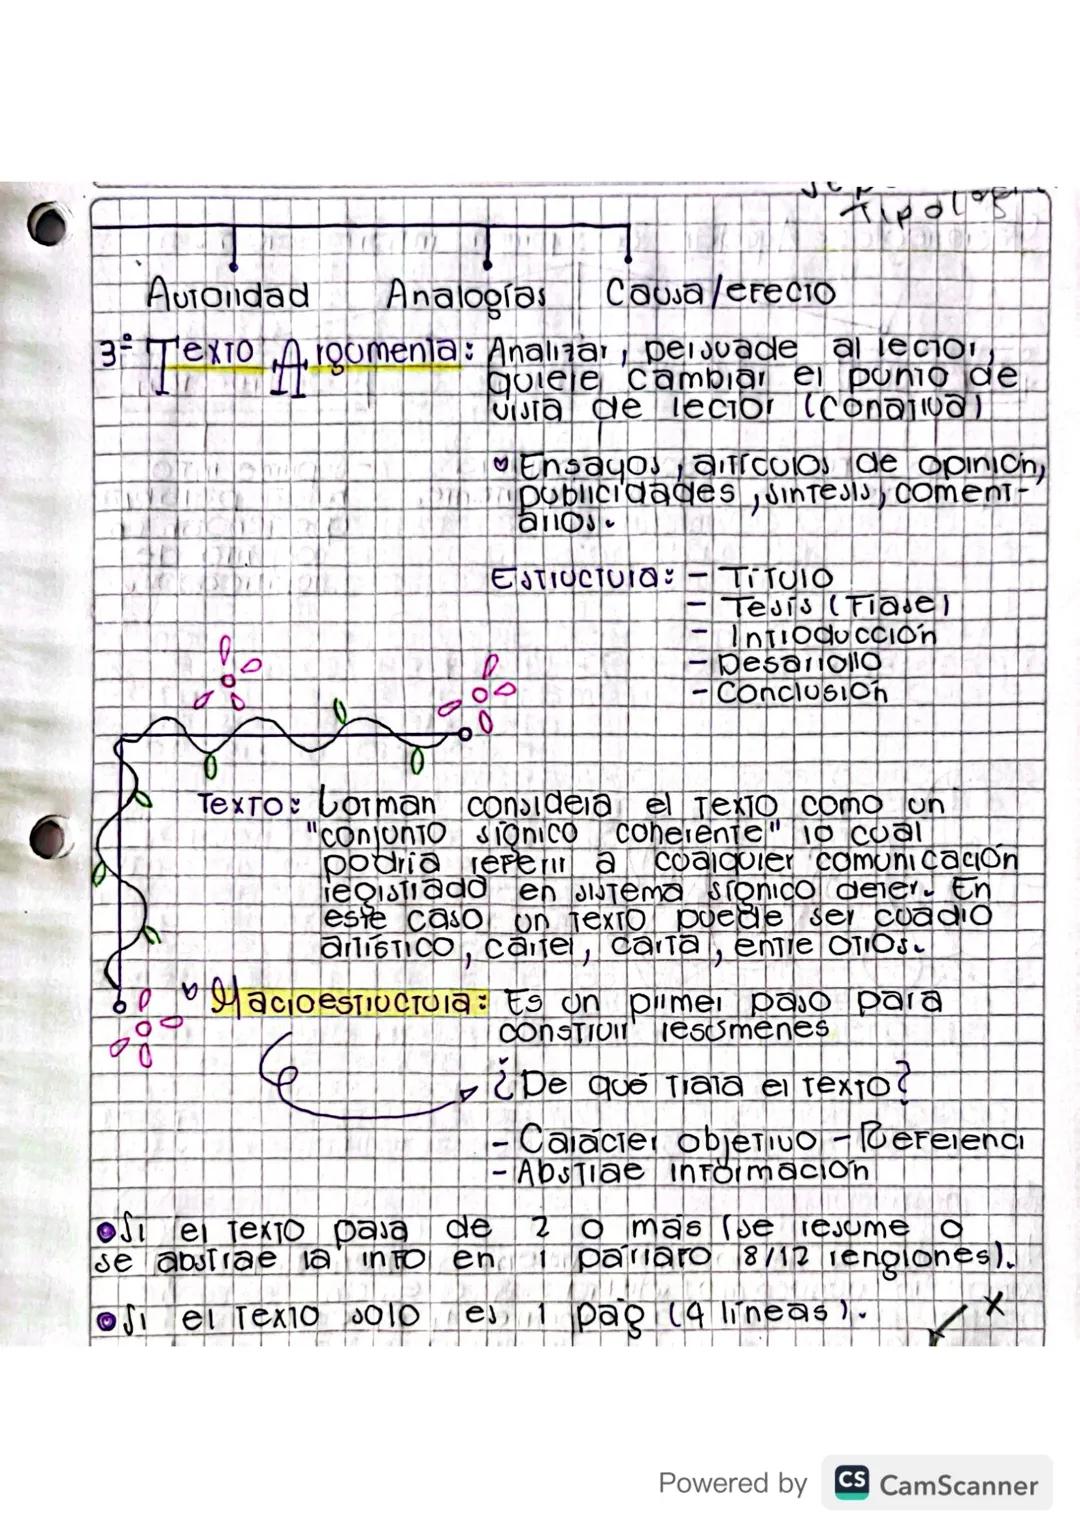 Tipolog
Autoridad Analogías Causa/efecto
3º Texto Argumenta: Analizar, persuade al lector,
quiere cambiar el punto de
vista de lector (conativa)
Ensayos, artículos de opinión,
publicidades, síntesis, coment-
arios.
Estructura: - Título
- Tesis (Frase)
- Introducción
- Desarrollo
- Conclusión
Texto: Lotman considera el texto como un
"conjunto sígnico coherente" lo cual
podría referir a cualquier comunicación
registrado en sistema sígnico deter. En
este caso un texto puede ser cuadro
artístico, cartel, carta, entre otros.
Macroestructura: Es un primer paso para
construir resúsmenes
¿De qué trata el texto?
- Carácter objetivo - Referenci
- Abstrae información
Si el texto pasa de 2 o más (se resume o
se abstrae la info en 1 párrafo 8/12 renglones).
Si el texto solo es 1 pág (4 líneas).
x
Powered by CS CamScanner